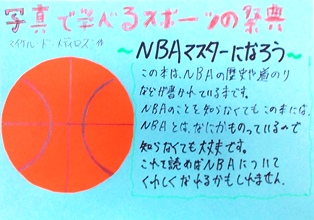 写真で学べるスポーツの祭典
マイケル・ド・メデイロス・作
～NBAマスターになろう～
この本は、NBAの歴史や道のり
などが書かれている本です。
NBAのことを知らなくてもこの本には、
NBAとは、なにかものっているので
知らなくても大丈夫です。
これを読めばNBAについて
くわしくなれるかもしれません。